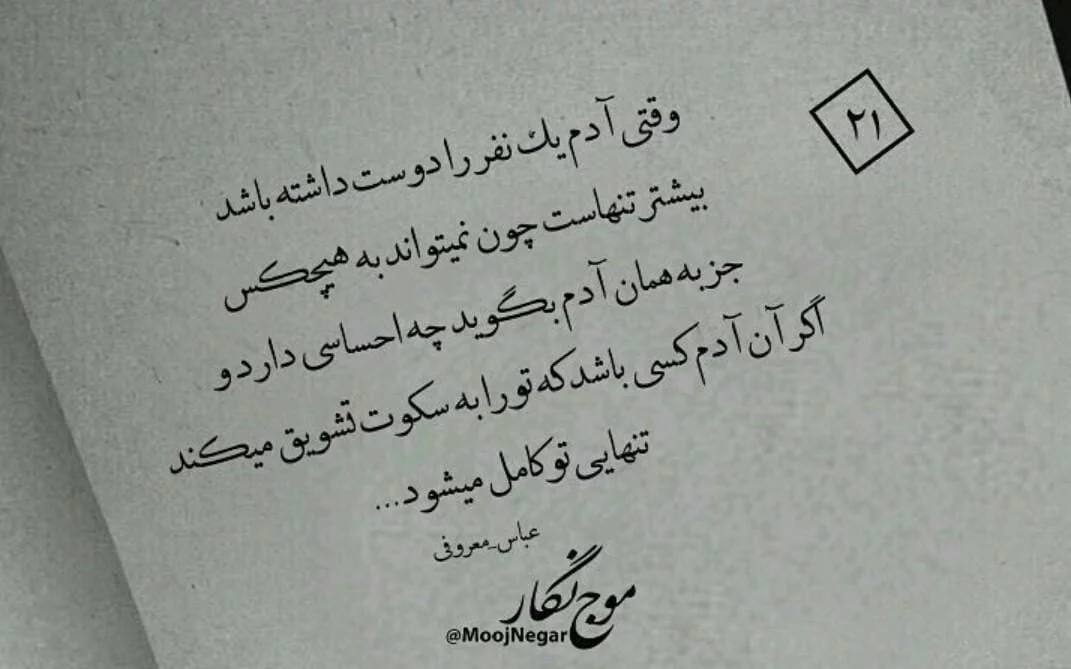 ۲۱
وقتی آدم یك نفر را دوست داشته باشد
بیشتر تنهاست چون نمیتواند به هیچکس
جز به همان آدم بگوید چه احساسی دارد و
اگر آن آدم کسی باشد که تو را به سکوت تشویق میکند
تنهایی تو کامل میشود...
عباس_معروفی
موج نگار
@MoojNegar